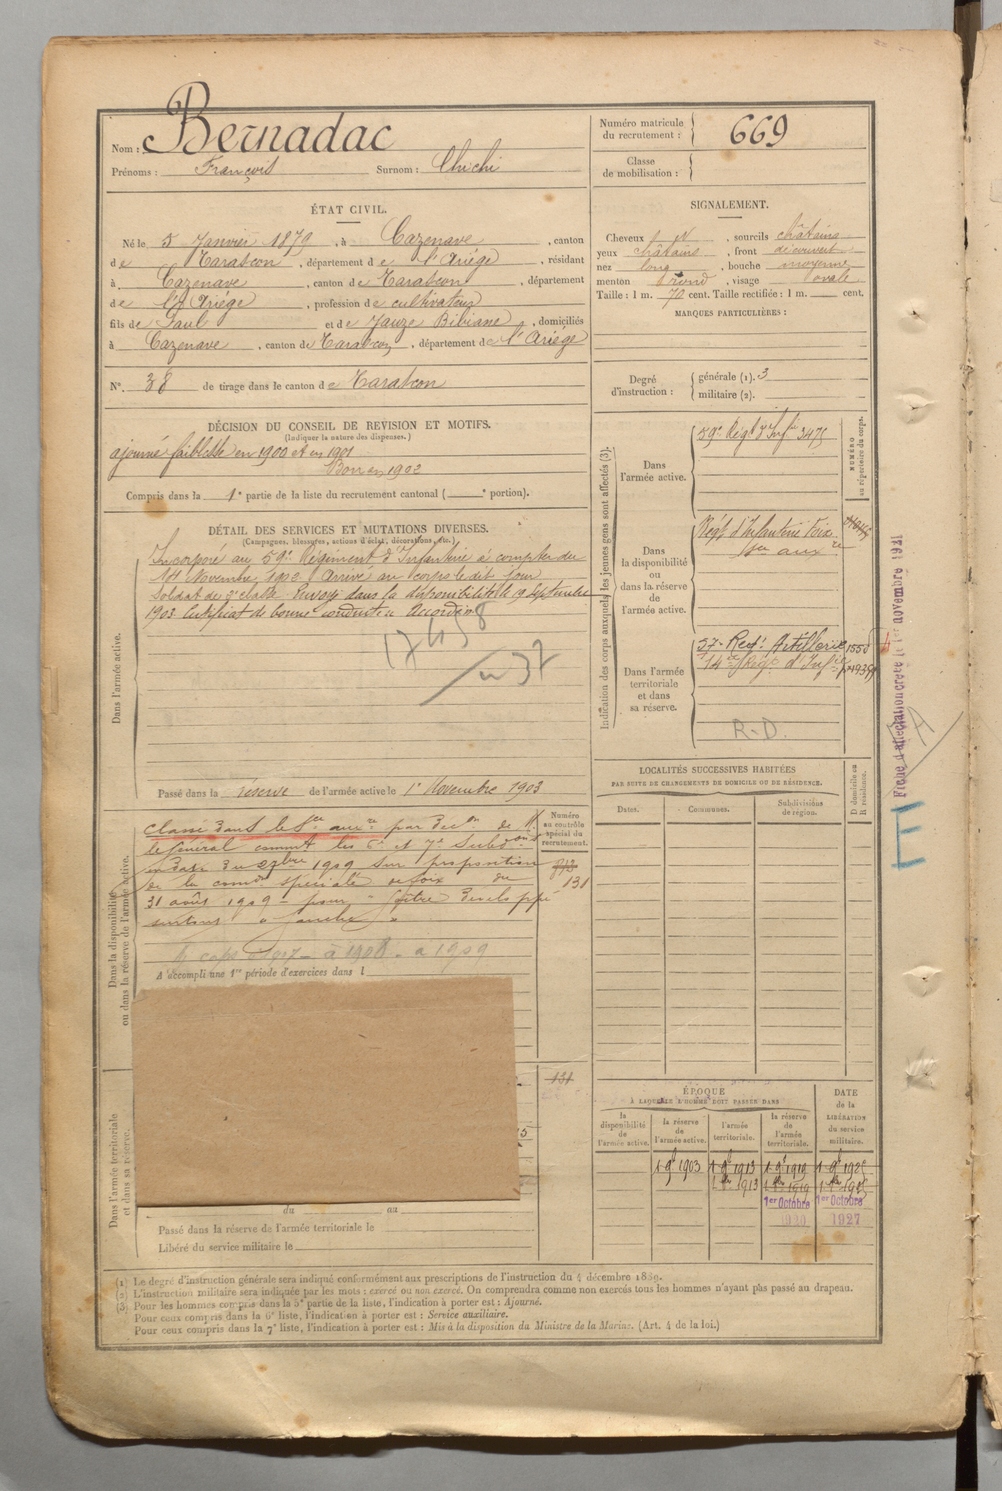 Nom : Bernadac
Prénoms : François Surnom : Chichi
Numéro matricule du recrutement : 669
Classe de mobilisation :
ÉTAT CIVIL.
Né le 5 Janvier 1879, à Cazenave, canton
de Tarascon, département de l'Ariège, résidant
à Cazenave, canton de Tarascon, département
de l'Ariège, profession de cultivateur
fils de Paul et de Jauze Bibiane, domiciliés
à Cazenave, canton de Tarascon, département de l'Ariège
N°. 38 de tirage dans le canton de Tarascon
SIGNALEMENT.
Cheveux, sourcils châtains
yeux châtains, front découvert
nez long, bouche moyenne
menton rond, visage ovale
Taille : 1 m. 70 cent. Taille rectifiée : 1 m. cent.
MARQUES PARTICULIÈRES :
Degré d'instruction : générale (1). 3
militaire (2).
DÉCISION DU CONSEIL DE REVISION ET MOTIFS.
(Indiquer la nature des dispenses.)
ajourné faiblesse en 1900 et en 1901
Bon en 1902
Compris dans la 1e partie de la liste du recrutement cantonal ( e portion).
DÉTAIL DES SERVICES ET MUTATIONS DIVERSES.
(Campagnes, blessures, actions d'éclat, décorations, etc.)
Dans l'armée active.
Incorporé au 59e Régiment d'Infanterie à compter du
Novembre 1902. Arrivé au corps le dit jour
Soldat de 2e classe. Envoyé dans la disponibilité le 19 Septembre
1903 Certificat de bonne conduite Accordé
17458
37
Passé dans la réserve de l'armée active le 1er Novembre 1903
Indication des corps auxquels les jeunes gens sont affectés (3).
NUMÉRO au répertoire du corps.
Dans l'armée active.
59e Régt d'Infie 3475
Dans la disponibilité ou dans la réserve de l'armée active.
Régt d'Infanterie Foix
Ser auxre
Dans l'armée territoriale et dans sa réserve.
57e Regt Artillerie 1550
14e Régt d'Infie
R-D.
Fiche d'affectation créée le 1er novembre 1921
Dans la disponibilité ou dans la réserve de l'armée active.
Numéro au contrôle spécial du recrutement.
Classé dans le Sce auxre par décon de M.
le Général commt les 6e et 7e Subdons
en date du 1909 sur proposition
de la comon spéciale de Foix du
31 août 1909 - pour - goître développé
surtout à gauche
131
à 1908 - à 1909
A accompli une 1re période d'exercices dans l
LOCALITÉS SUCCESSIVES HABITÉES
PAR SUITE DE CHANGEMENTS DE DOMICILE OU DE RÉSIDENCE.
Dates. Communes. Subdivisions de région. D domicile ou R résidence.
Dans l'armée territoriale et dans sa réserve.
131
du au
Passé dans la réserve de l'armée territoriale le
Libéré du service militaire le
ÉPOQUE
À LAQUELLE L'HOMME DOIT PASSER DANS
la disponibilité de l'armée active. la réserve de l'armée active. l'armée territoriale. la réserve de l'armée territoriale. DATE de la LIBÉRATION du service militaire.
1 9e 1903 1 9e 1913 1 9e 1919 1 9e 1925
1913 1919
1er Octobre 1er Octobre
1920 1927
(1) Le degré d'instruction générale sera indiqué conformément aux prescriptions de l'instruction du 4 décembre 1889.
(2) L'instruction militaire sera indiquée par les mots : exercé ou non exercé. On comprendra comme non exercés tous les hommes n'ayant pas passé au drapeau.
(3) Pour les hommes compris dans la 5e partie de la liste, l'indication à porter est : Ajourné.
Pour ceux compris dans la 6e liste, l'indication à porter est : Service auxiliaire.
Pour ceux compris dans la 7e liste, l'indication à porter est : Mis à la disposition du Ministre de la Marine. (Art. 4 de la loi.)